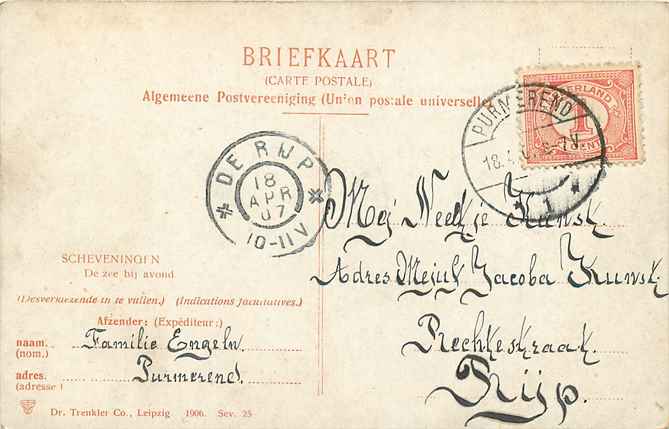 BRIEFKAART
(CARTE POSTALE)
Algemeene Postvereeniging (Union postale universelle
PURMEREND
18.4
1
NEDERLAND
1
CENT
DE RIJP
18
APR
07
10-11V
SCHEVENINGEN
De zee bij avond
(Desverkiezende in te vullen.) (Indications facultatives.)
Afzender: (Expéditeur:)
naam. Familie Engeln.
(nom.)
adres. Purmerend.
(adresse)
Dr. Trenkler Co., Leipzig 1906. Sev. 25
Mej Neeltje Kunst.
Adres Mejuf Jacoba Kunst
Rechtestraat.
Rijp.